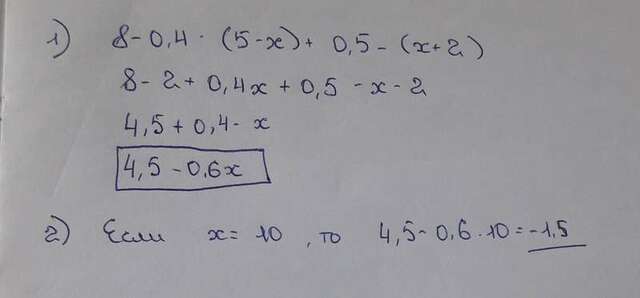 1) 8-0,4 · (5-x)+ 0,5 - (x+2)
8- 2+ 0,4x + 0,5 -x - 2
4,5 + 0,4- x
4,5 - 0,6x
2) Если x= 10 , то 4,5- 0,6 · 10 = -1,5